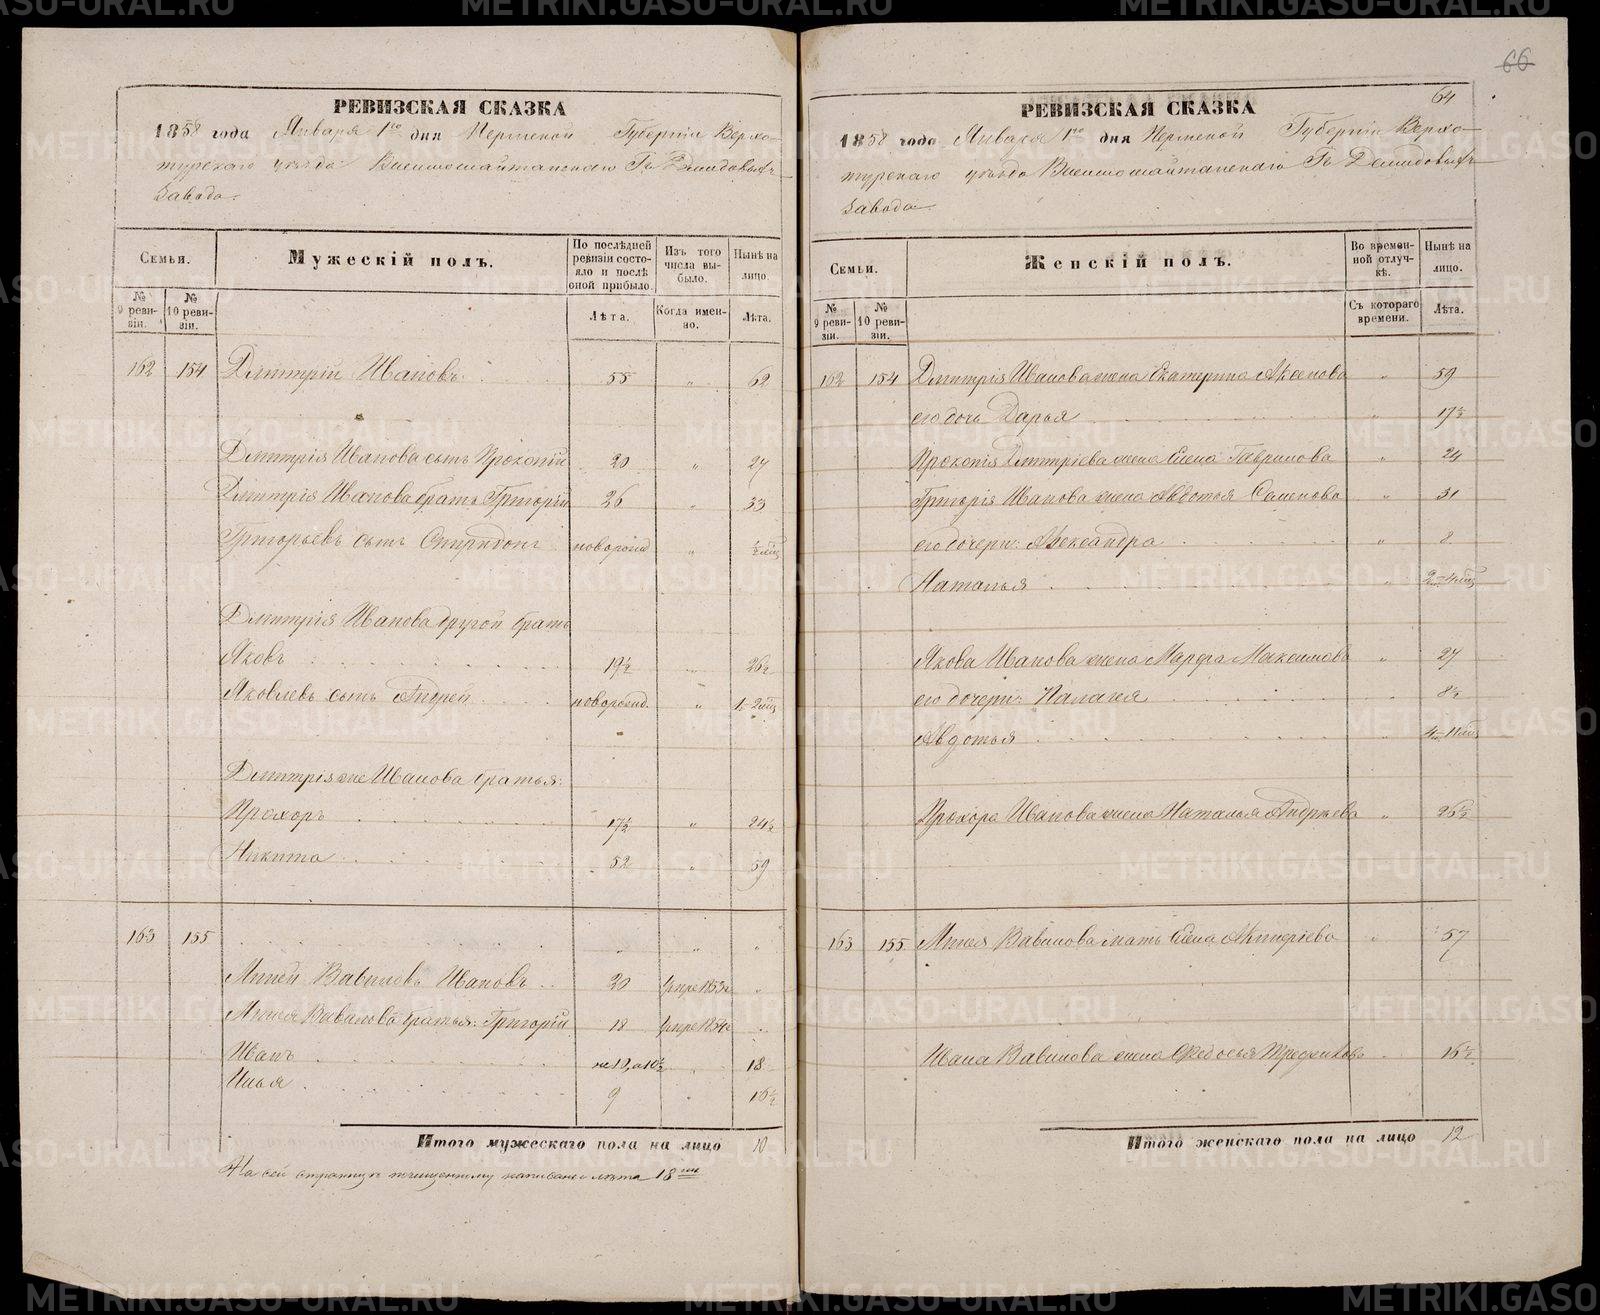 66
РЕВИЗСКАЯ СКАЗКА
1858 года Января 1го дня Пермской Губернiи Верхо-
турскаго уѣзда Висимошайтанскаго Гг Демидовыхъ
Завода.
Семьи.
Мужескiй полъ.
По послѣдней ревизiи состояло и послѣ оной прибыло.
Изъ того числа выбыло.
Нынѣ на лицо.
№ 9 ревизiи.
№ 10 ревизiи.
Лѣта.
Когда именно.
Лѣта.
162 154 Дмитрiй Ивановъ 55 " 62
Дмитрiя Иванова сынъ Прокопiй 20 " 27
Дмитрiя Иванова братъ Григорiй 26 " 33
Григорьевъ сынъ Спиридонъ новорожд " ½ мца
Дмитрiя Иванова другой братъ
Яковъ 19½ " 26½
Яковлевъ сынъ Андрей новорожд. " 1-2 мца
Дмитрiя же Иванова братья:
Прохоръ 17½ " 24½
Никита 52 " 59
163 155 " " "
Миней Вавиловъ Ивановъ 20 умре 1853г "
Минея Вавилова братья: Григорiй 18 умре 1854г "
Иванъ не 13, а 10½ " 18
Илья 9 " 16½
Итого мужескаго пола на лицо 10
На сей страницѣ по чищенному написано лѣта 18
64
РЕВИЗСКАЯ СКАЗКА
1858 года Января 1го дня Пермской Губернiи Верхо-
турскаго уѣзда Висимошайтанскаго Гг Демидовыхъ
Завода.
Семьи.
Женскiй полъ.
Во временной отлучкѣ.
Нынѣ на лицо.
№ 9 ревизiи.
№ 10 ревизiи.
Съ котораго времени.
Лѣта.
162 154 Дмитрiя Иванова жена Екатерина Аксенова " 59
его дочь Дарья " 17½
Прокопiя Дмитрiева жена Елена Гаврилова " 24
Григорiя Иванова жена Авдотья Семенова " 31
его дочери: Александра " 8
Наталья " 2-4 мца
Якова Иванова жена Марфа Максимова " 27
его дочери: Палагея " 8½
Авдотья " 4-11 мца
Прохора Иванова жена Наталья Андреева " 25½
163 155 Минея Вавилова мать Елена Акиндiева " 57
Ивана Вавилова жена Федосья 16½
Итого женскаго пола на лицо 12